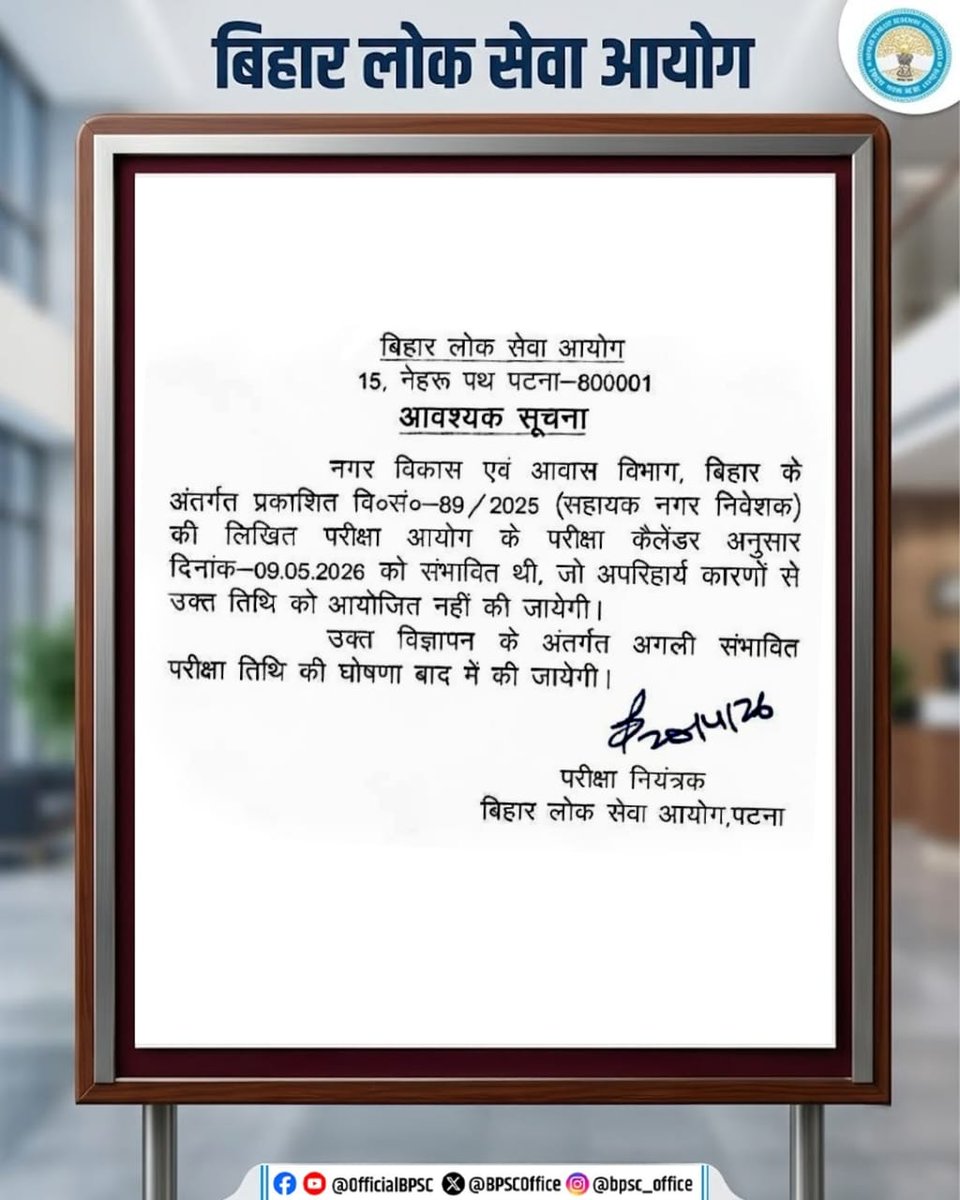 बिहार लोक सेवा आयोग
बिहार लोक सेवा आयोग
15, नेहरू पथ पटना–800001
आवश्यक सूचना
नगर विकास एवं आवास विभाग, बिहार के
अंतर्गत प्रकाशित वि०सं०–89/2025 (सहायक नगर निवेशक)
की लिखित परीक्षा आयोग के परीक्षा कैलेंडर अनुसार
दिनांक–09.05.2026 को संभावित थी, जो अपरिहार्य कारणों से
उक्त तिथि को आयोजित नहीं की जायेगी।
उक्त विज्ञापन के अंतर्गत अगली संभावित
परीक्षा तिथि की घोषणा बाद में की जायेगी।
20/4/26
परीक्षा नियंत्रक
बिहार लोक सेवा आयोग,पटना
@OfficialBPSC @BPSCOffice @bpsc_office